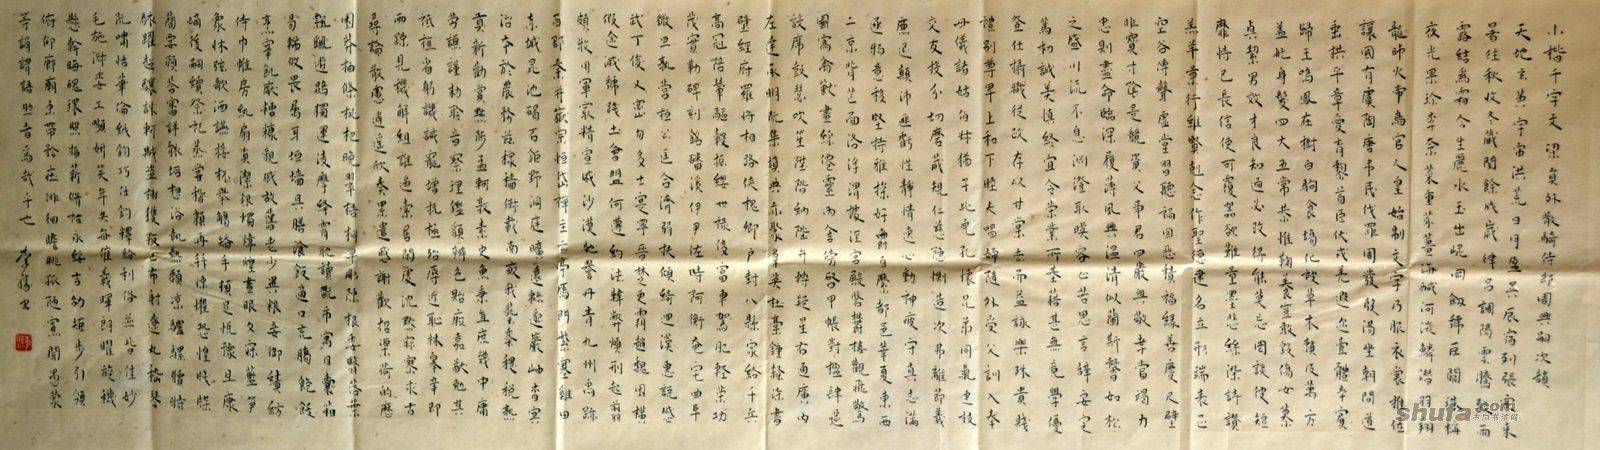 小楷千字文 梁員外散騎侍郎周興嗣次韻
天地玄黃宇宙洪荒日月盈昃辰宿列張寒來
暑往秋收冬藏閏餘成歲律呂調陽雲騰致雨
露結為霜金生麗水玉出崐岡劍號巨闕珠稱
夜光果珍李柰菜重芥薑海鹹河淡鱗潛羽翔
龍師火帝鳥官人皇始制文字乃服衣裳推位
讓國有虞陶唐弔民伐罪周發殷湯坐朝問道
垂拱平章愛育黎首臣伏戎羌遐邇壹體率賓
歸王鳴鳳在樹白駒食場化被草木賴及萬方
蓋此身髮四大五常恭惟鞠養豈敢毀傷女慕
貞潔男效才良知過必改得能莫忘罔談彼短
靡恃己長信使可覆器欲難量墨悲絲染詩讚
羔羊景行維賢剋念作聖德建名立形端表正
空谷傳聲虛堂習聽禍因惡積福緣善慶尺璧
非寶寸陰是競資父事君曰嚴與敬孝當竭力
忠則盡命臨深履薄夙興溫凊似蘭斯馨如松
之盛川流不息淵澄取暎容止若思言辭安定
篤初誠美慎終宜令榮業所基藉甚無竟學優
登仕攝職從政存以甘棠去而益詠樂殊貴賤
禮別尊卑上和下睦夫唱婦隨外受訓入奉
母儀諸姑伯叔猶子比兒孔懷兄弟同氣連枝
交友投分切磨箴規仁慈隱惻造次弗離節義
廉退顛沛匪虧性靜情逸心動神疲守真志滿
逐物意移堅持雅操好爵自縻都邑華夏東西
二京背芒面洛浮渭據涇宮殿盤鬱樓觀飛驚
圖寫禽獸畫綵僊靈丙舍傍啓甲帳對楹肆筵
設席鼓瑟吹笙陞階納陛弁轉疑星右通廣內
左達承明既集墳典亦聚羣英杜稾鍾隸漆書
壁經府羅將相路俠槐卿戶封八縣家給千兵
高冠陪輦驅轂振纓世祿侈富車駕肥輕策功
茂實勒碑刻銘磻溪伊尹佐時阿衡奄宅曲阜
微旦孰營桓公匡合濟弱扶傾綺迴漢惠說感
武丁俊乂密勿多士寔寧晉楚更霸趙魏困橫
假途滅虢踐土會盟何遵約法韓弊煩刑起翦
頗牧用軍最精宣威沙漠馳譽丹青九州禹跡
百郡秦并嶽宗恒岱禪主云亭雁門紫塞雞田
赤城昆池碣石鉅野洞庭曠遠綿邈巖岫杳冥
治本於農務茲稼穡俶載南畝我藝黍稷稅熟
貢新勸賞黜陟孟軻敦素史魚秉直庶幾中庸
勞謙謹勅聆音察理鑑貌辨色貽厥嘉猷勉其
祗植省躬譏誡寵增抗極殆辱近恥林皋幸即
兩疏見機解組誰逼索居閒處沈默寂寥求古
尋論散慮逍遙欣奏累遣慼謝歡招渠荷的歷
園莽抽條枇杷晚翠梧桐早彫陳根委翳落葉
飄颻遊鵾獨運凌摩絳霄耽讀翫市寓目囊箱
易輶攸畏屬耳垣墻具膳飡飯適口充腸飽飫
烹宰飢厭糟糠親戚故舊老少異糧妾御績紡
侍巾帷房紈扇員潔銀燭煒煌晝眠夕寐藍筍
象床弦歌酒讌接杯舉觴矯手頓足悅豫且康
嫡後嗣續祭祀蒸嘗稽顙再拜悚懼恐惶牋牒
簡要顧答審詳骸垢想浴執熱願涼驢騾犢特
駭躍超驤誅斬賊盜捕獲叛亡布射遼丸嵇琴
阮嘯恬筆倫紙鈞巧任釣釋紛利俗並皆佳妙
毛施淑姿工嚬妍笑年矢每催羲暉朗曜旋璣
懸斡晦魄環照指薪修祜永綏吉劭矩步引領
俯仰廊廟束帶矜莊徘徊瞻眺孤陋寡聞愚蒙
等誚謂語助者焉哉乎也
shufa.com